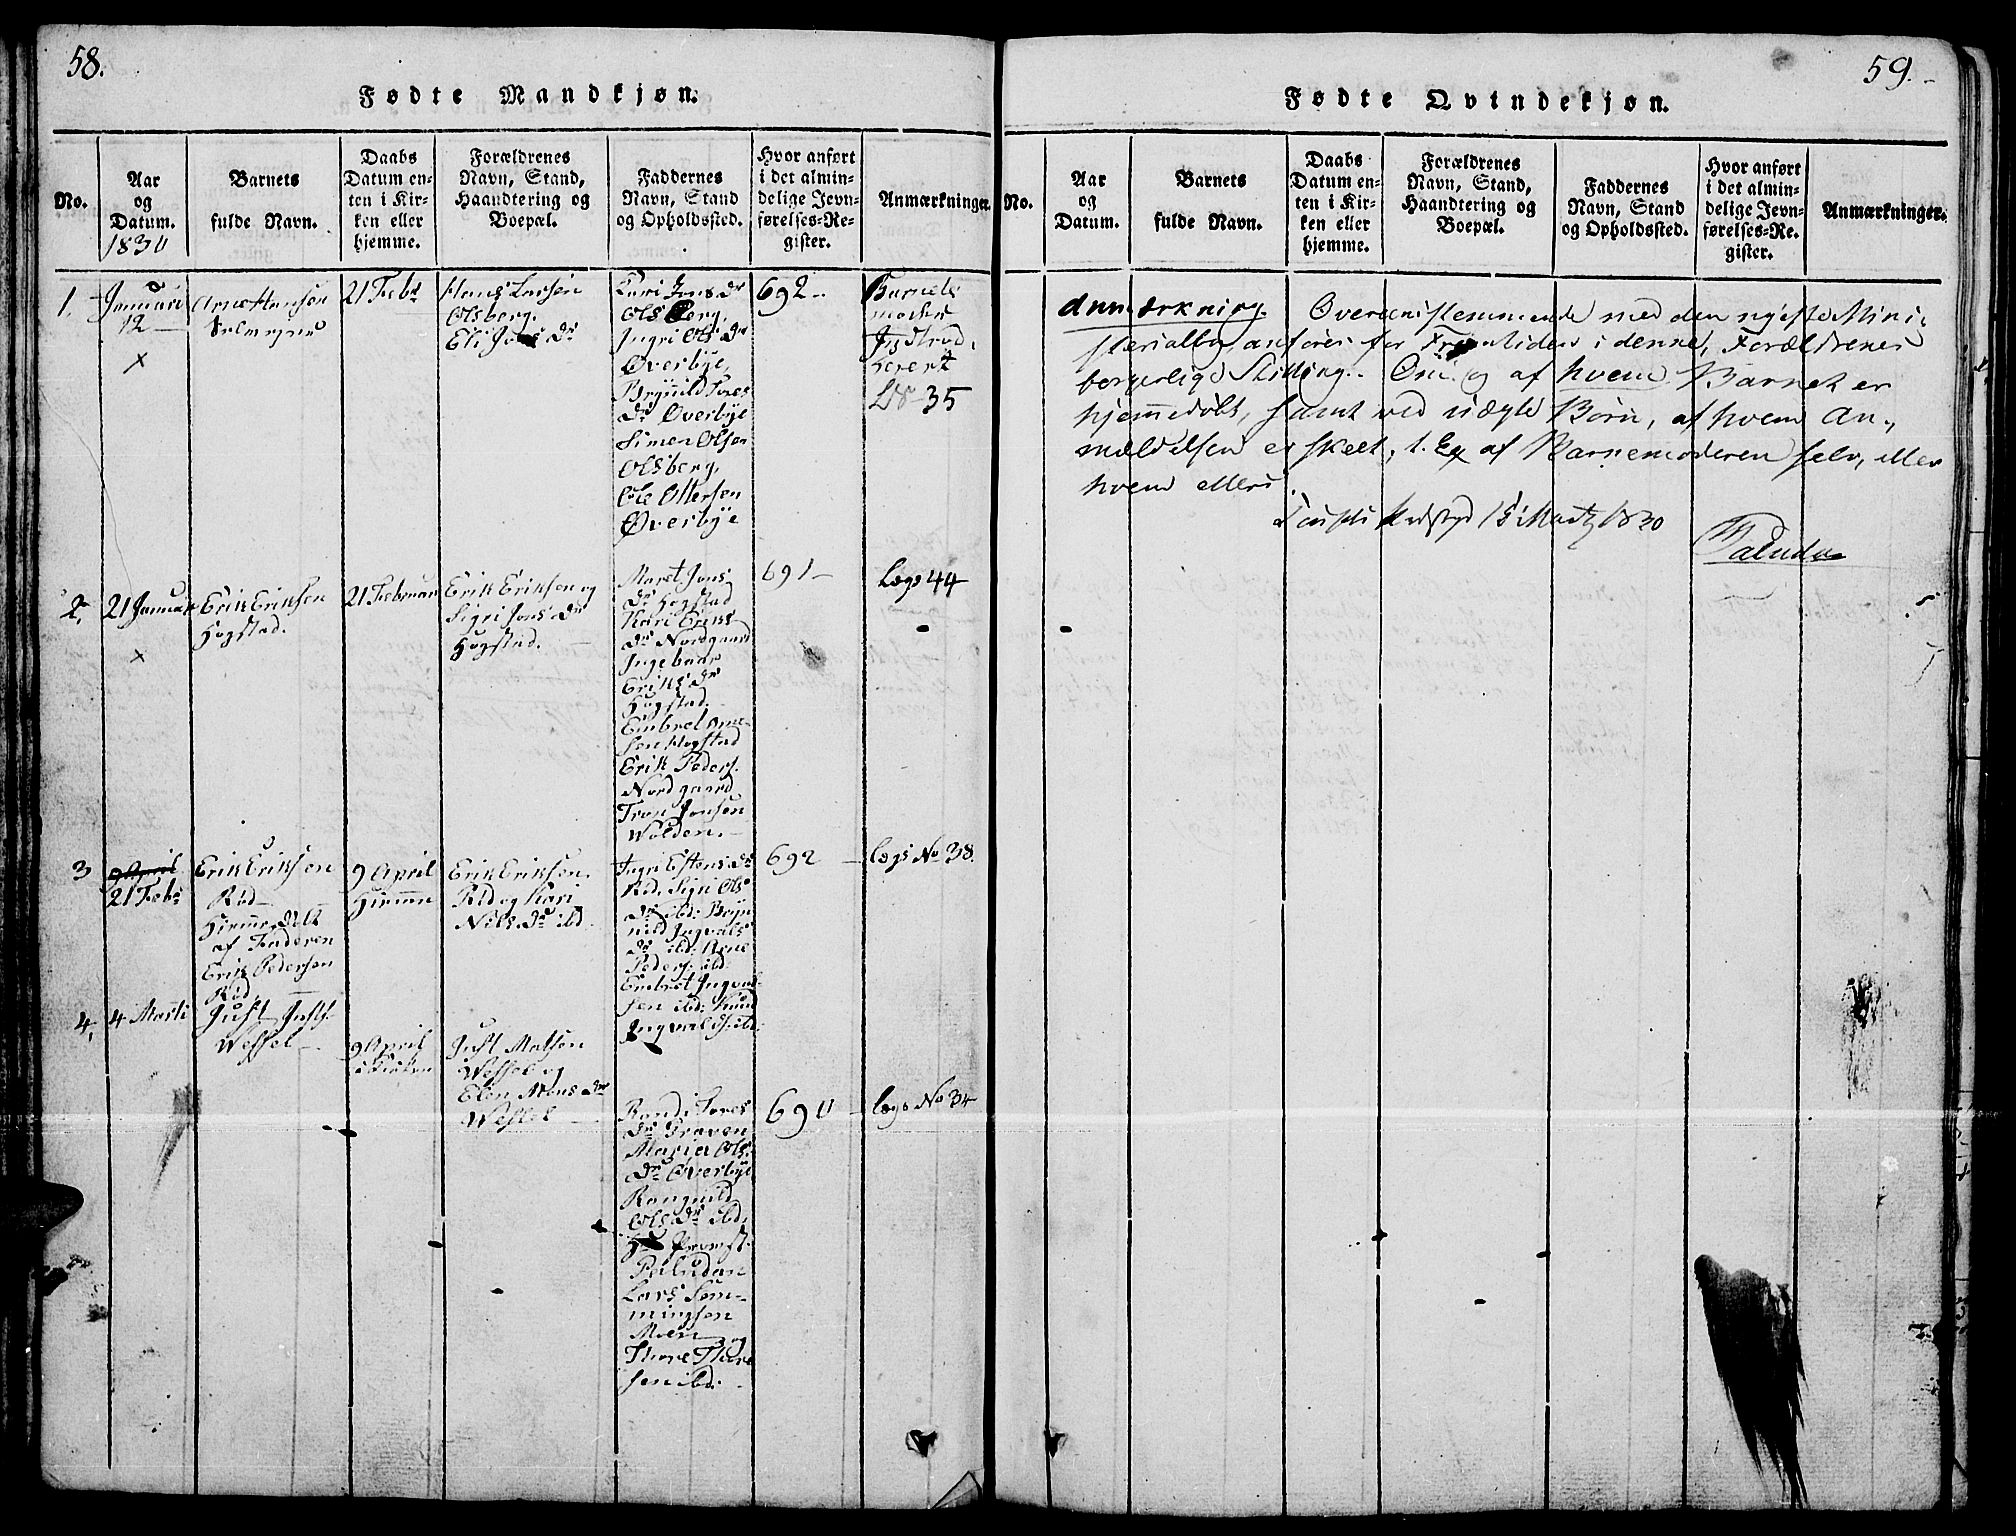 58.
Fødte Mandkjøn.
No.
Aar
og
Datum.
1830
Barnets
fulde Navn.
Daabs
Datum en-
ten i Kir-
ken eller
hjemme.
Forældrenes
Navn, Stand,
Haandtering og
Boepæl.
Faddernes
Navn, Stand
og Opholdssted.
Hvor anført
i det almin-
delige Jevn-
førelses-Re-
gister.
Anmærkninger.
1.
Januari
12
x
Arne Hansen
21 Febr
Hans Larsen
Olsberg.
Eli Jons Dr
Kari Jons Dr
Olsberg,
Ingri Ols Dr
Øverbye,
Brynild Tores
Dr Øverbye
Simen Olsen
Olsberg,
Ole Ottersen
Øverbye
692
Barnets
moder
35
2.
21 Januar
x
Erik Eriksen
Hogstad.
21 Februar
Erik Eriksen og
Sigri Jons Dr
Hogstad.
Maret Jons
Dr Hogstad
Kari Eriks
Dr Nordgaard
Ingebaar
Eriks Dr
Hogstad.
Embret Arne-
sen Hogstad
Erik Peders.
Nordgaard
Tron Jonsen
Wolden.
691
Lægs 44
3
9 April
21 Febr
Erik Eriksen
Rød
Hiemmedøbt
af Faderen
Erik Pedersen
Rød
9 April
Erik Eriksen
Rød og Kari
Nils Dr ibd.
Ingri Estens Dr
Rød. Sigri Ols
Dr ibd: Bryn
nild Ingvals
Dr ibd: Arne
Peders. ibd.
Embret Ingval-
sen ibd: Knud
Ingvals. ibd.
692
lægs No 38.
4.
4 Marti
Just Justs.
Wessel
9 April
i Kirken
Just Matsen
Wessel og
Elen Mons Dr
Wessel
Randi Tores
Dr Graven
Maria Ols.
Dr Øverbye
Rangnild
Ols Dr ibd.
Hr Provst
Paludan
Lars Sem-
mingsen
Moen og
Thore Thore
sen ibd.
690
lægs No 34
59.
Fødte Qvindekjøn.
No.
Aar
og
Datum.
Barnets
fulde Navn.
Daabs
Datum en-
ten i Kir-
ken eller
hjemme.
Forældrenes
Navn, Stand,
Haandtering og
Boepæl.
Faddernes
Navn, Stand
og Opholdssted.
Hvor anført
i det almin-
delige Jevn-
førelses-Re-
gister.
Anmærkninger.
Anmærkning. Overeenstemmende med den nyeste Mini-
sterialbog anføres for Fremtiden i denne, Forældrenes
borgerlige Stilling. Om og af hvem Barnet er
hjemmedøbt, samt ved uægte Børn, af hvem An-
mældelsen er skeet, t. Ex af Barnemoderen selv, eller
hvem ellers.
15 Martz 1830
Paludan